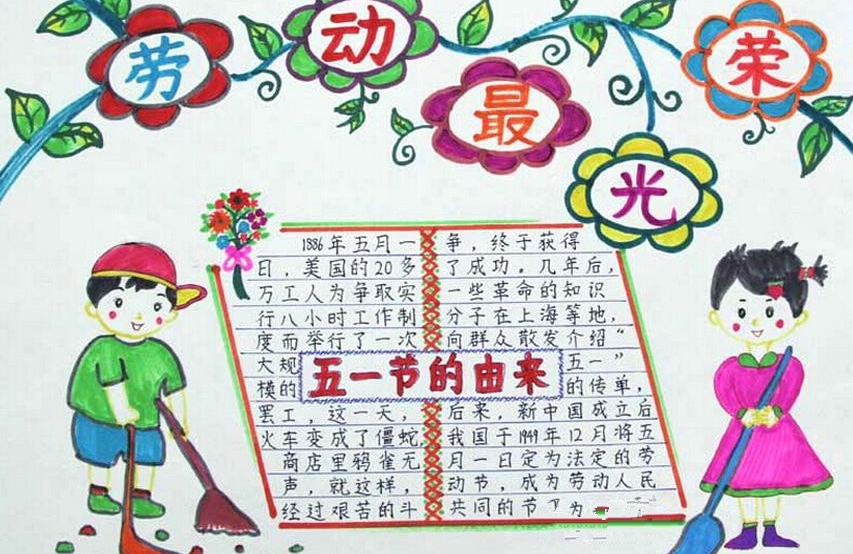 劳动最光荣
1886年五月一
日，美国的20多
万工人为争取实
行八小时工作制
度而举行了一次
大规
模的
罢工，这一天，
火车变成了僵蛇，
商店里鸦雀无
声，就这样，
经过艰苦的斗
五一节的由来
争，终于获得
了成功。几年后，
一些革命的知识
分子在上海等地，
向群众散发介绍“
五一”
的传单，
后来，新中国成立后
我国于1949年12月将五
月一日定为法定的劳
动节，成为劳动人民
共同的节
为